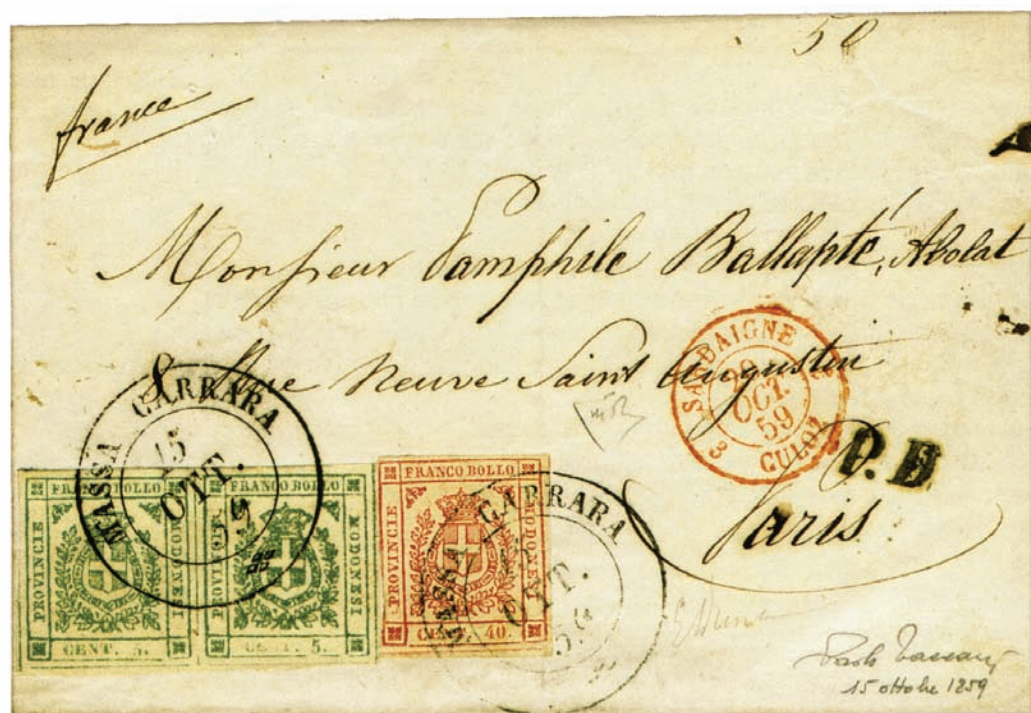 50
france
Monsieur Pamphile Ballapté, Avolat
8. Rue Neuve Saint Augustin
Paris
SARDAIGNE
OCT.
59
3 CULOZ 3
P.D.
MASSA CARRARA
15
OTT.
59
FRANCO BOLLO
PROVINCIE
MODONESI
CENT. 5.
FRANCO BOLLO
PROVINCIE
MODONESI
CENT. 5.
FRANCO BOLLO
PROVINCIE
MODONESI
CENT. 40.
MASSA CARRARA
OTT.
59
15 ottobre 1859